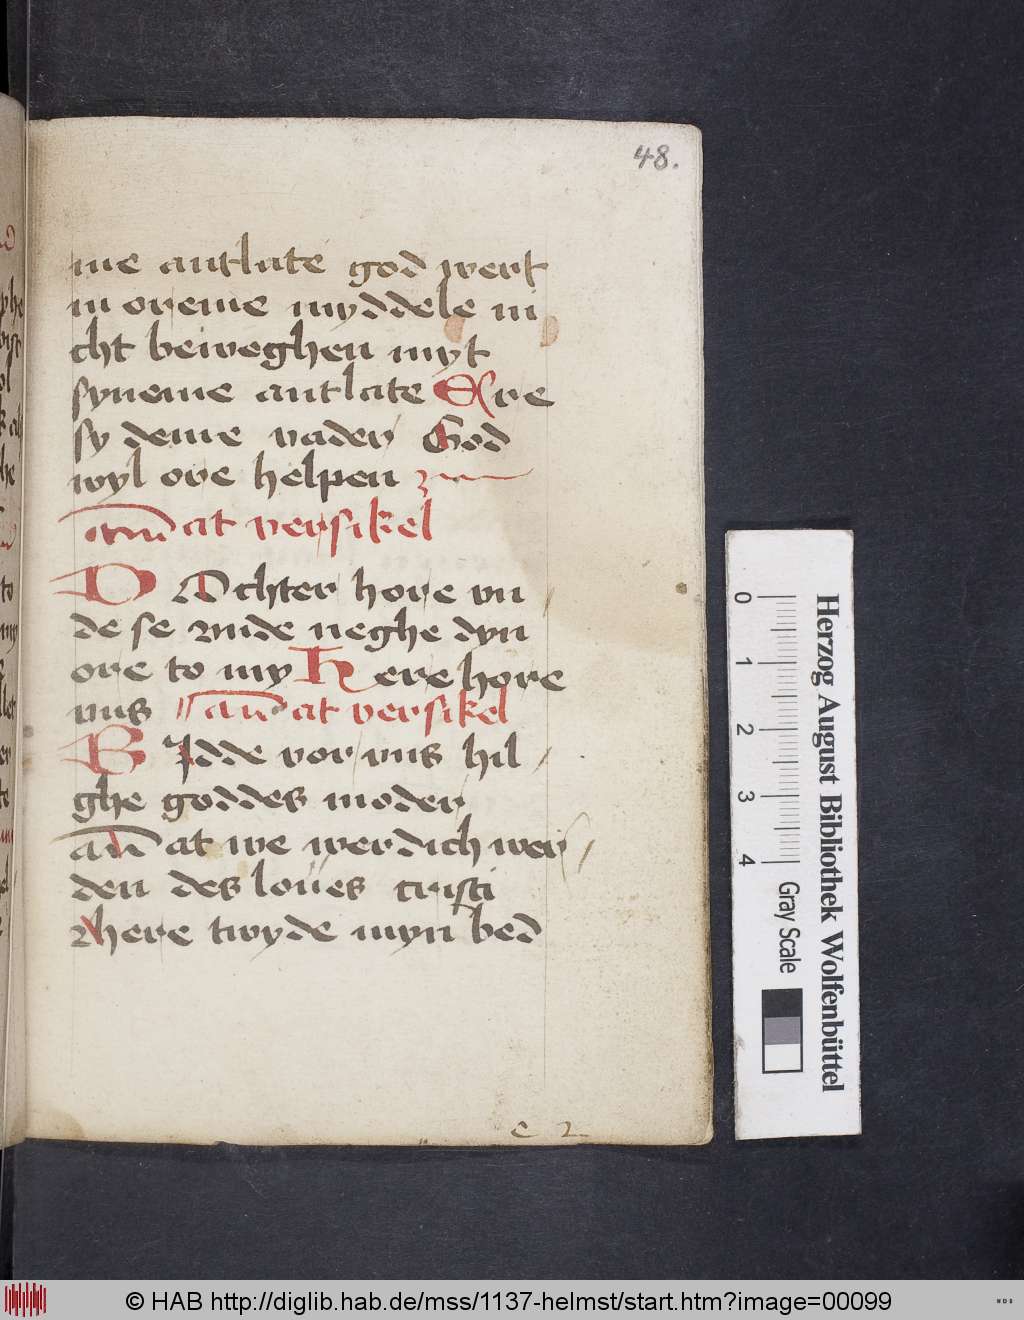 48.
me antlate god wert
in oreme myddele ni
cht beweghen myt
syneme antlate Ere
sy deme vader God
wyl ore helpen
dat versikel
Dochter hore vn
de se vnde neghe dyn
ore to my Here hore
vns dat versikel
Bidde vor vns hil
ghe goddes moder
dat we werdich wer
den des loues cristi
here twyde myn bed
c 2
Herzog August Bibliothek Wolfenbüttel
0 1 2 3 4 Gray Scale
© HAB http://diglib.hab.de/mss/1137-helmst/start.htm?image=00099